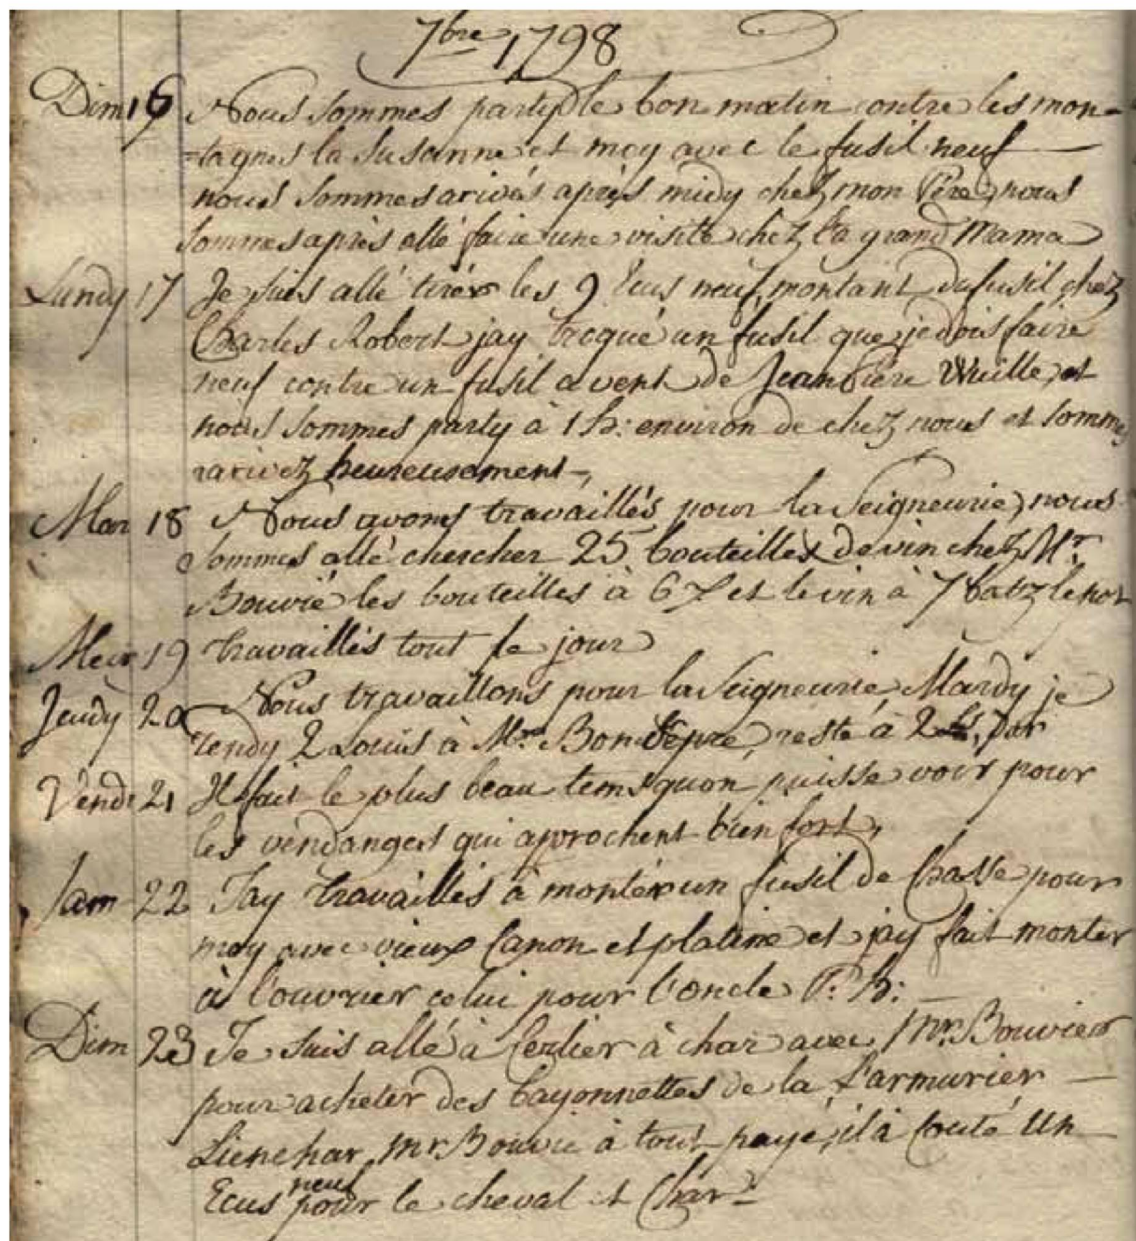 7bre 1798
Dim 16 Nous sommes party le bon matin contre les mon-
-tagnes la Susanne et moy avec le fusil neuf
nous sommes arivés après midy chez mon Père, nous
sommes après allé faire une visite chez la grand Mama
Lundy 17 Je suis allé tirér les 9 Ecus neuf, montant du fusil chez
Charles Robert jay troqué un fusil que je dois faire
neuf contre un fusil a vent de Jean Piere Wuille, et
nous sommes party à 1 h: environ de chez nous et sommes
arivez heureusement
Mar 18 Nous avons travaillés pour la Seigneurie, nous
sommes allé chercher 25 bouteilles de vin chez Mr.
Bouvié les bouteilles à 6 et le vin à 7 batz le pot
Mecr 19 travaillés tout le jour
Jeudy 20 Nous travaillons pour la Seigneurie Mardy je
rendy 2 Louis à Mr Bondepré, reste à 2 dor
Vend 21 Il fait le plus beau tems quon puisse voir pour
les vendanges qui aprochent bien fort,
Sam 22 Jay travaillés à montér un fusil de Chasse pour
moy avec vieux Canon et platine et jay fait monter
à l'ouvrier celui pour l'oncle P: h:
Dim 23 Je suis allé à Cerlier à char avec Mr. Bouvier
pour acheter des bayonnettes de la l'armurier
Lienehar, Mr Bouvié à tout payé, il à couté Un
Ecus neuf pour le cheval et Char